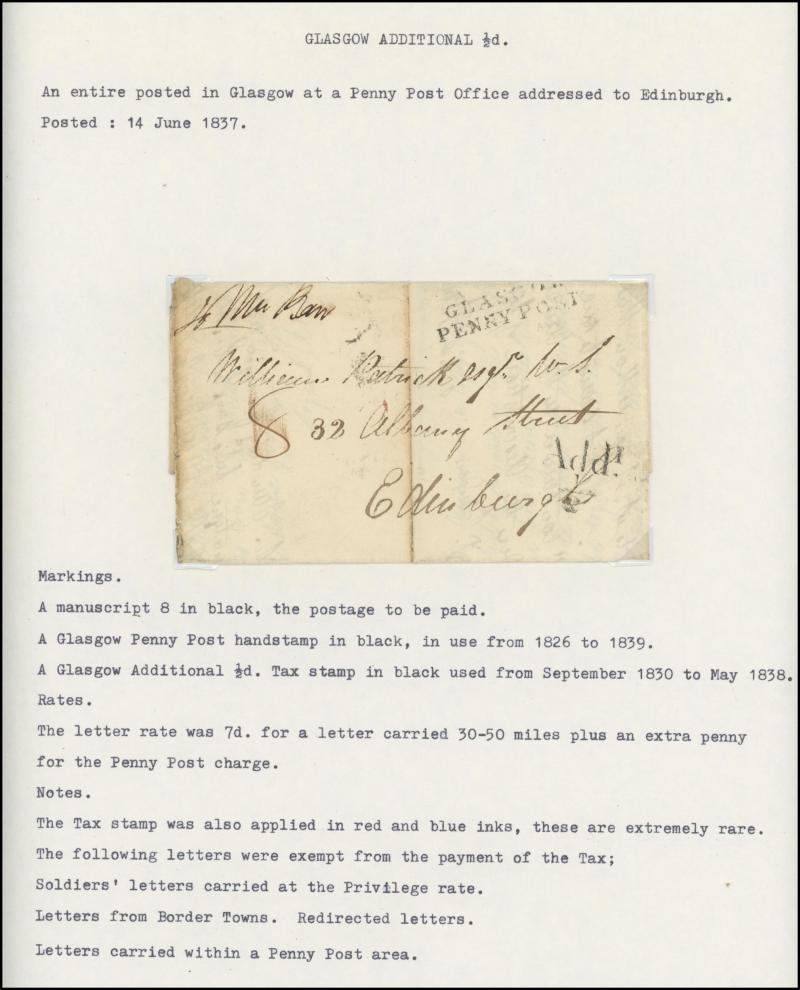 GLASGOW ADDITIONAL ½d.
An entire posted in Glasgow at a Penny Post Office addressed to Edinburgh.
Posted : 14 June 1837.
GLASGOW
PENNY POST
William Patrick Esqr. W.S.
8 32 Albany Street
Addl
½
Edinburgh
Markings.
A manuscript 8 in black, the postage to be paid.
A Glasgow Penny Post handstamp in black, in use from 1826 to 1839.
A Glasgow Additional ½d. Tax stamp in black used from September 1830 to May 1838.
Rates.
The letter rate was 7d. for a letter carried 30-50 miles plus an extra penny
for the Penny Post charge.
Notes.
The Tax stamp was also applied in red and blue inks, these are extremely rare.
The following letters were exempt from the payment of the Tax;
Soldiers' letters carried at the Privilege rate.
Letters from Border Towns. Redirected letters.
Letters carried within a Penny Post area.